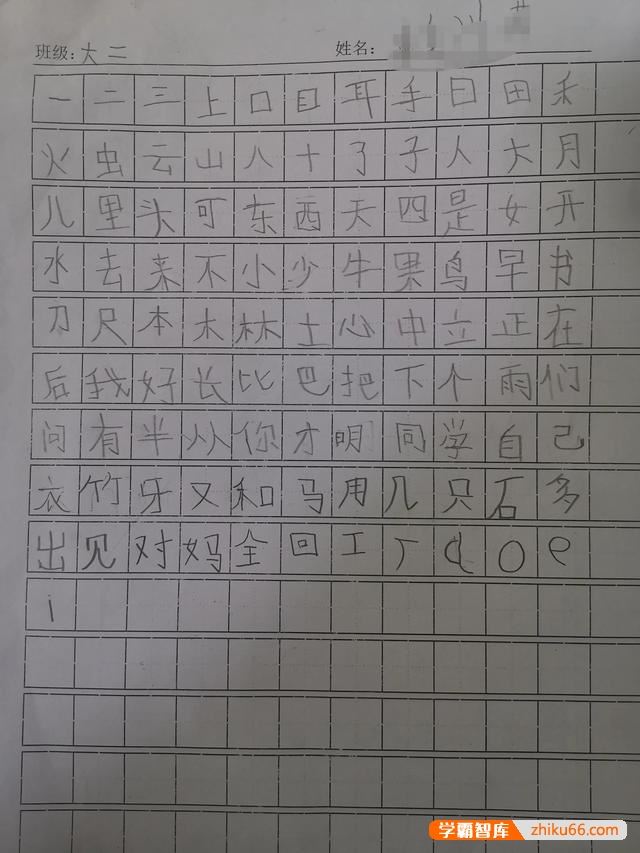 班级: 大二 姓名:
一二三上口目耳手日田禾
火虫云山八十了子人大月
儿里头可东西天四是女开
水去来不小少牛果鸟早书
刀尺本木林土心中立正在
后我好长比巴把下个雨们
问有半从你才明同学自己
衣竹牙又和马用几只石多
出见对妈全回工厂 d o e
i
学霸智库 zhiku66.com